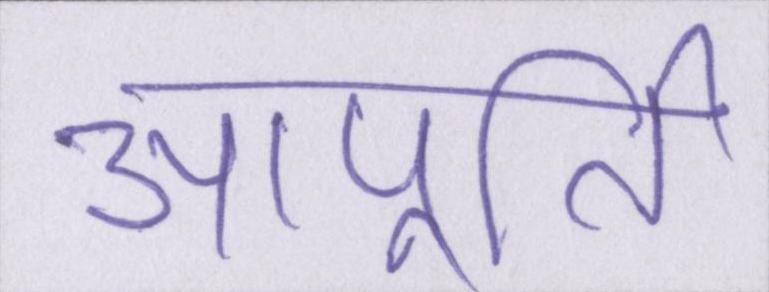 आपूर्ति